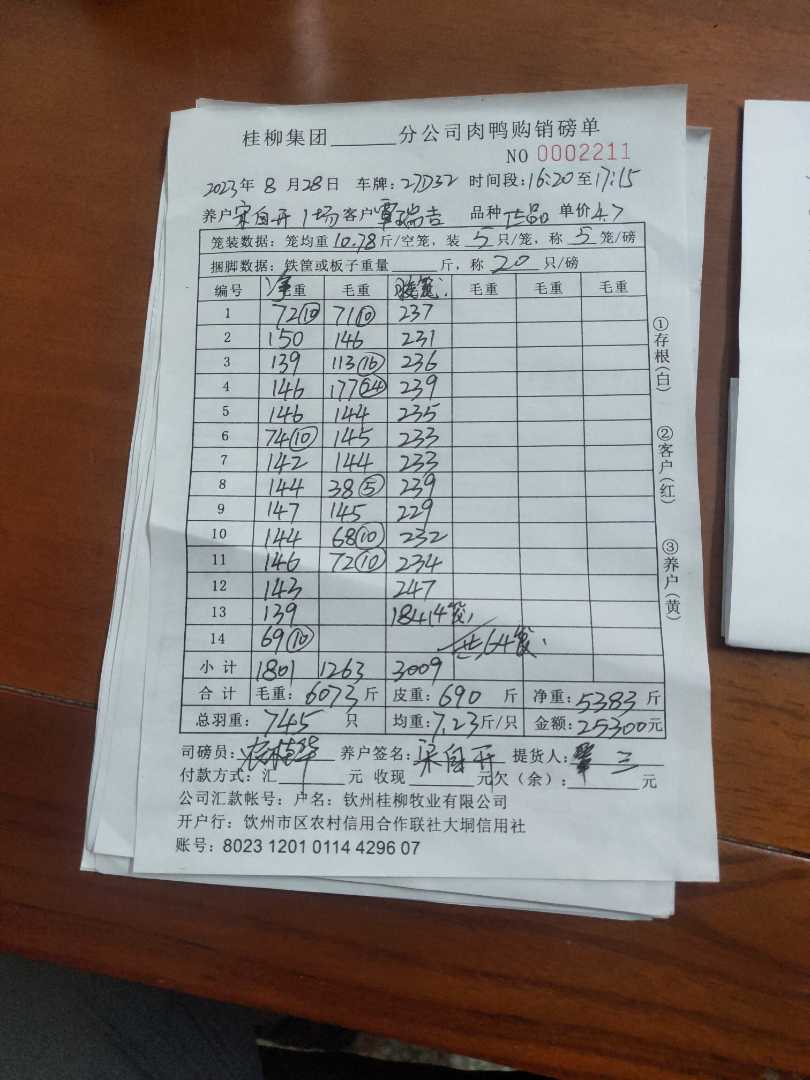 桂柳集团______分公司肉鸭购销磅单
NO 0002211
2023年 8 月28日 车牌:27D32 时间段:16:20至17:15
养户 自开 1场 客户 覃瑞吉 品种 正品 单价4.7
笼装数据:笼均重10.78斤/空笼,装 5 只/笼,称 5 笼/磅
捆脚数据:铁筐或板子重量____斤,称 20 只/磅
编号 净重 毛重 毛重 毛重 毛重
1 72(10) 71(10) 237
2 150 146 231
3 139 113(16) 236
4 146 177(24) 239
5 146 144 235
6 74(10) 145 233
7 142 144 233
8 144 38(5) 239
9 147 145 229
10 144 68(10) 232
11 146 72(10) 234
12 143 247
13 139 184(4笼)
14 69(10) 共64笼.
小计 1801 1263 3009
合计 毛重:6073斤 皮重:690 斤 净重:5383斤
总羽重:745 只 均重:7.23斤/只 金额:25300元
司磅员: 养户签名: 自开 提货人: 三
付款方式:汇______元 收现______元欠(余):______元
公司汇款帐号:户名:钦州桂柳牧业有限公司
开户行:钦州市区农村信用合作联社大垌信用社
账号:8023 1201 0114 4296 07
①存根(白)
②客户(红)
③养户(黄)